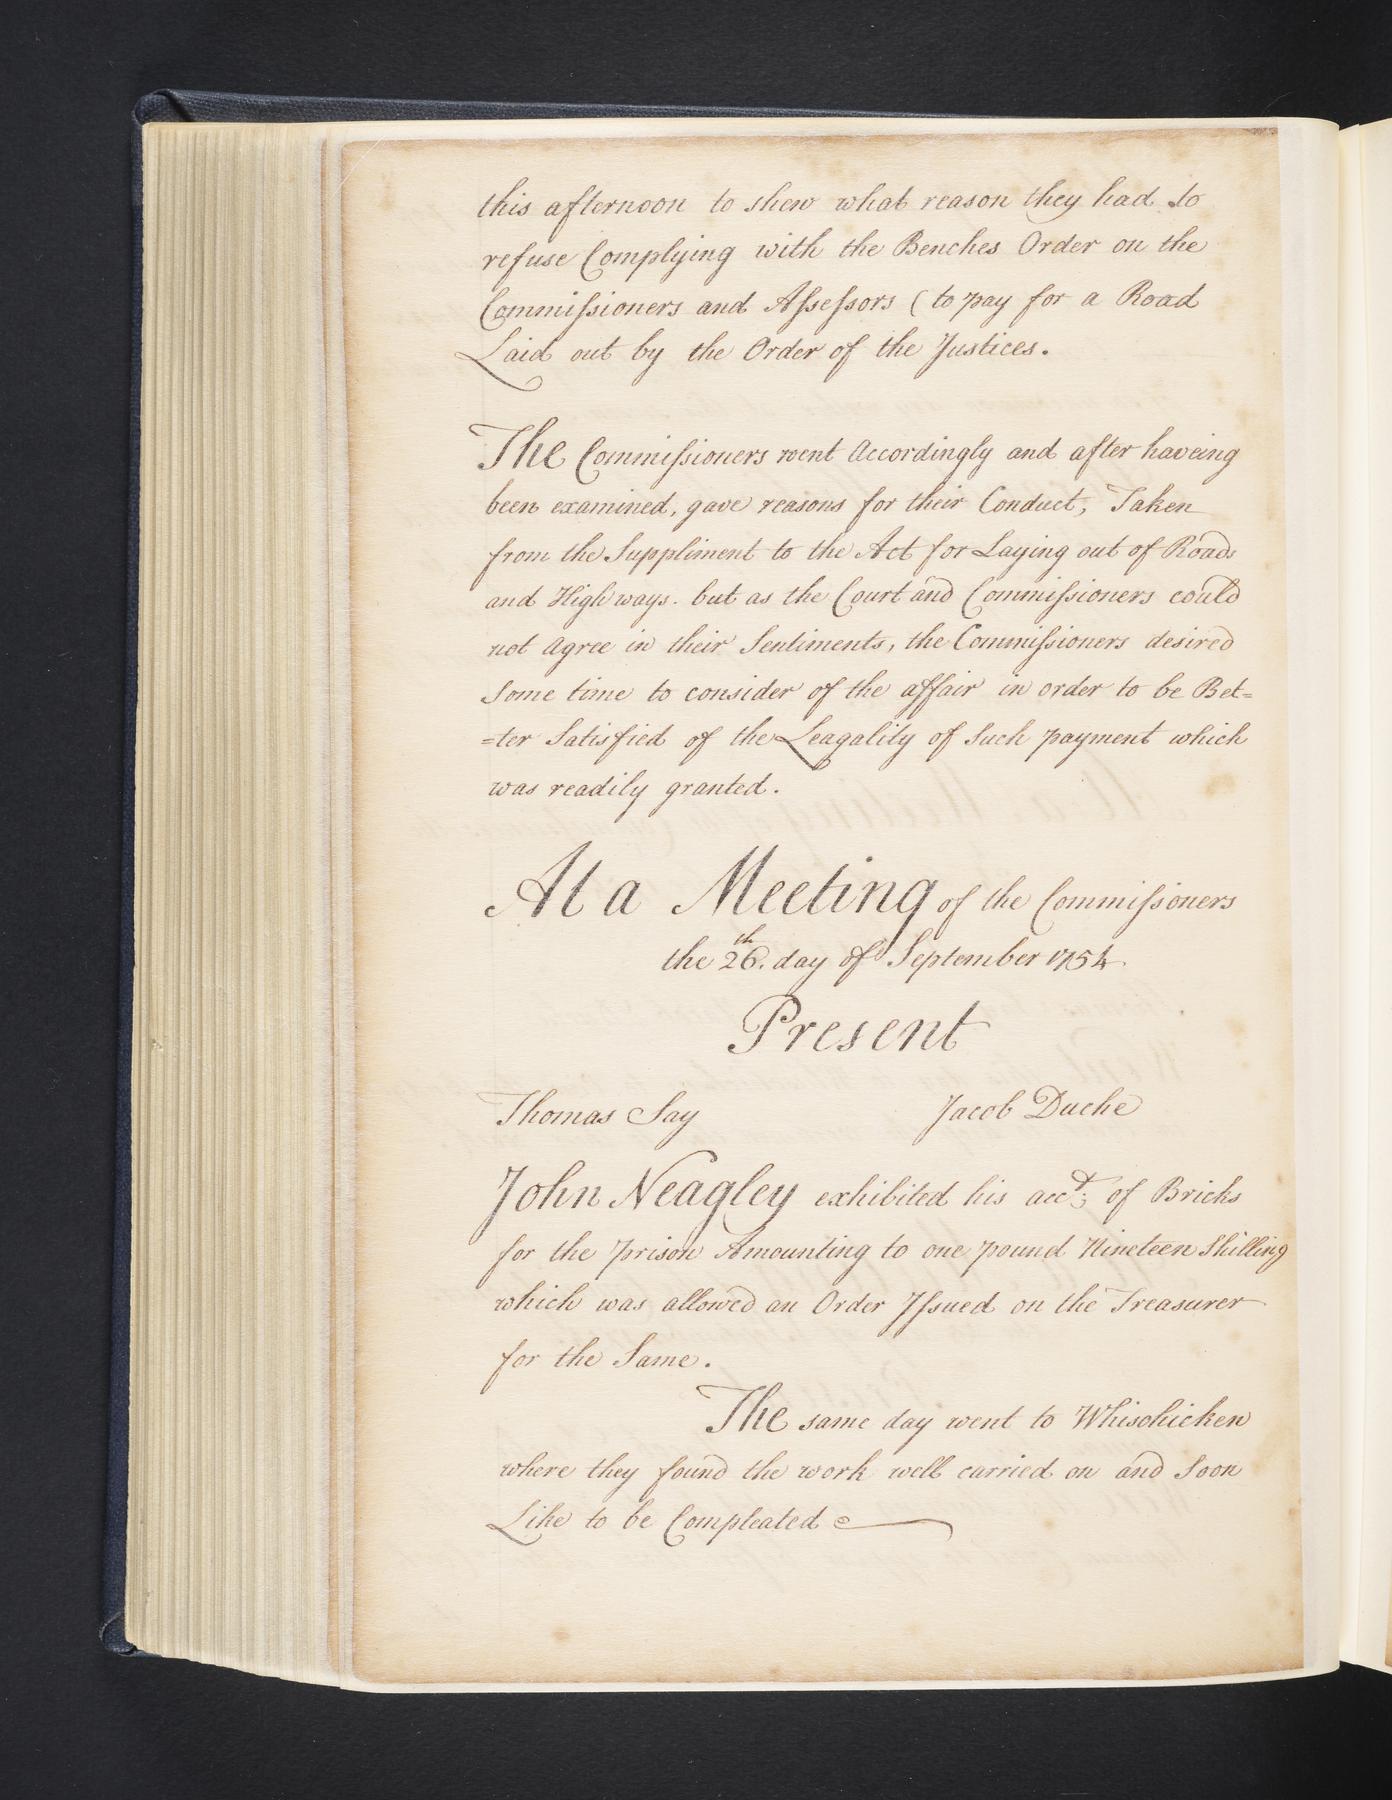 this afternoon to shew what reason they had to
refuse Complying with the Benches Order on the
Commiſsioners and Aſseſsors ( to pay for a Road
Laid out by the Order of the Justices.
The Commiſsioners went Accordingly and after haveing
been examined, gave reasons for their Conduct, Taken
from the Suppliment to the Act for Laying out of Roads
and High ways. but as the Court and Commiſsioners could
not Agree in their Sentiments, the Commiſsioners desired
Some time to consider of the affair in order to be Bet=
=ter Satisfied of the Leagality of Such payment which
was readily granted.
At a Meeting of the Commiſsioners
the 26th. day of September 1754
Present
Thomas Say Jacob Duche
John Neagley exhibited his acct; of Bricks
for the prison Amounting to one pound Nineteen Shilling
which was allowed an Order Iſsued on the Treasurer
for the Same.
The same day went to Whisohicken
where they found the work well carried on and Soon
Like to be Compleated